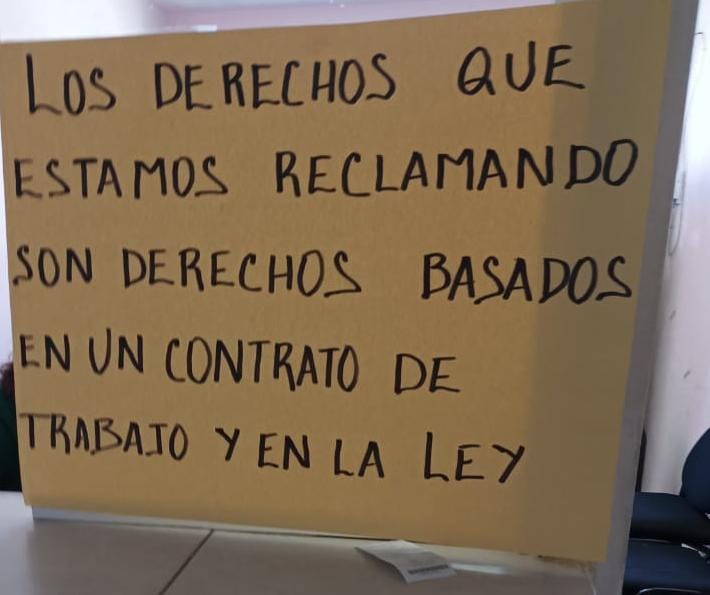 LOS DERECHOS QUE
ESTAMOS RECLAMANDO
SON DERECHOS BASADOS
EN UN CONTRATO DE
TRABAJO Y EN LA LEY